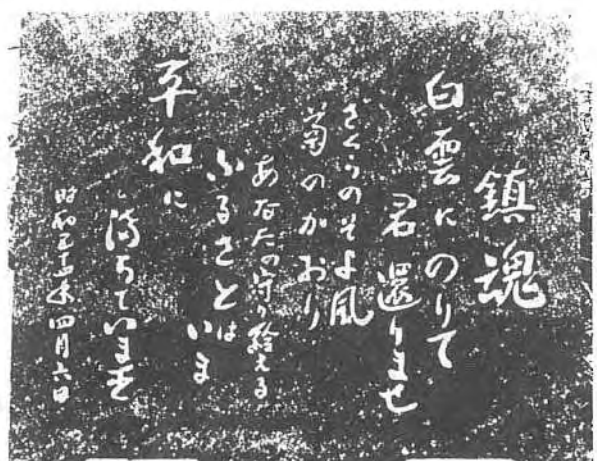 鎮魂
白雲にのりて
君還りませ
さくらのそよ風
菊のかおり
あなたの守り給える
ふるさとは
いま
平和に
満ちています
昭和五十三年四月六日